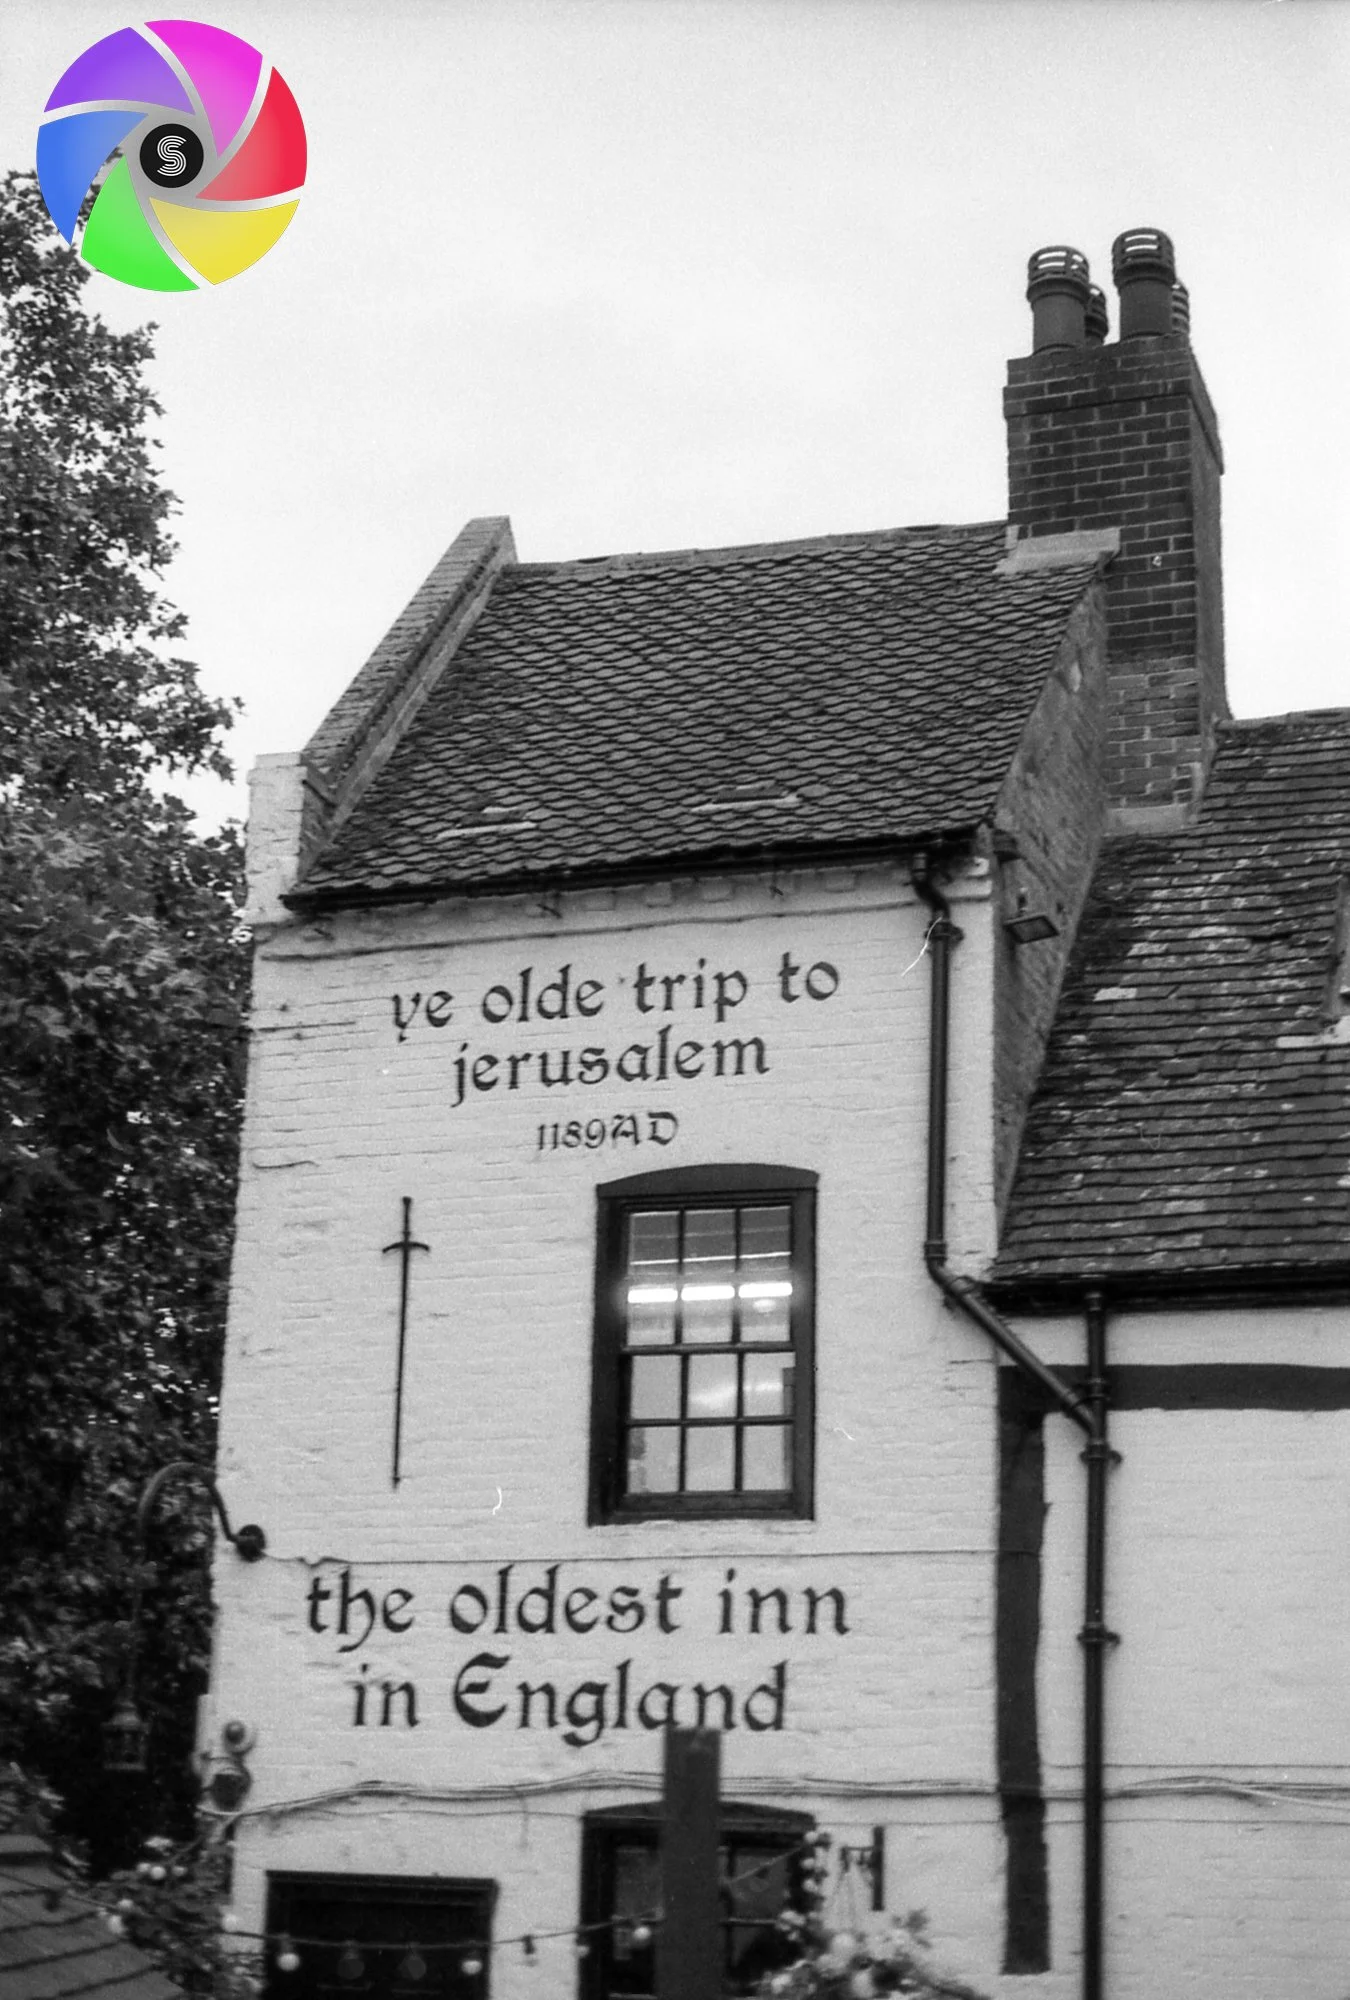 S
ye olde trip to
jerusalem
1189AD
the oldest inn
in England